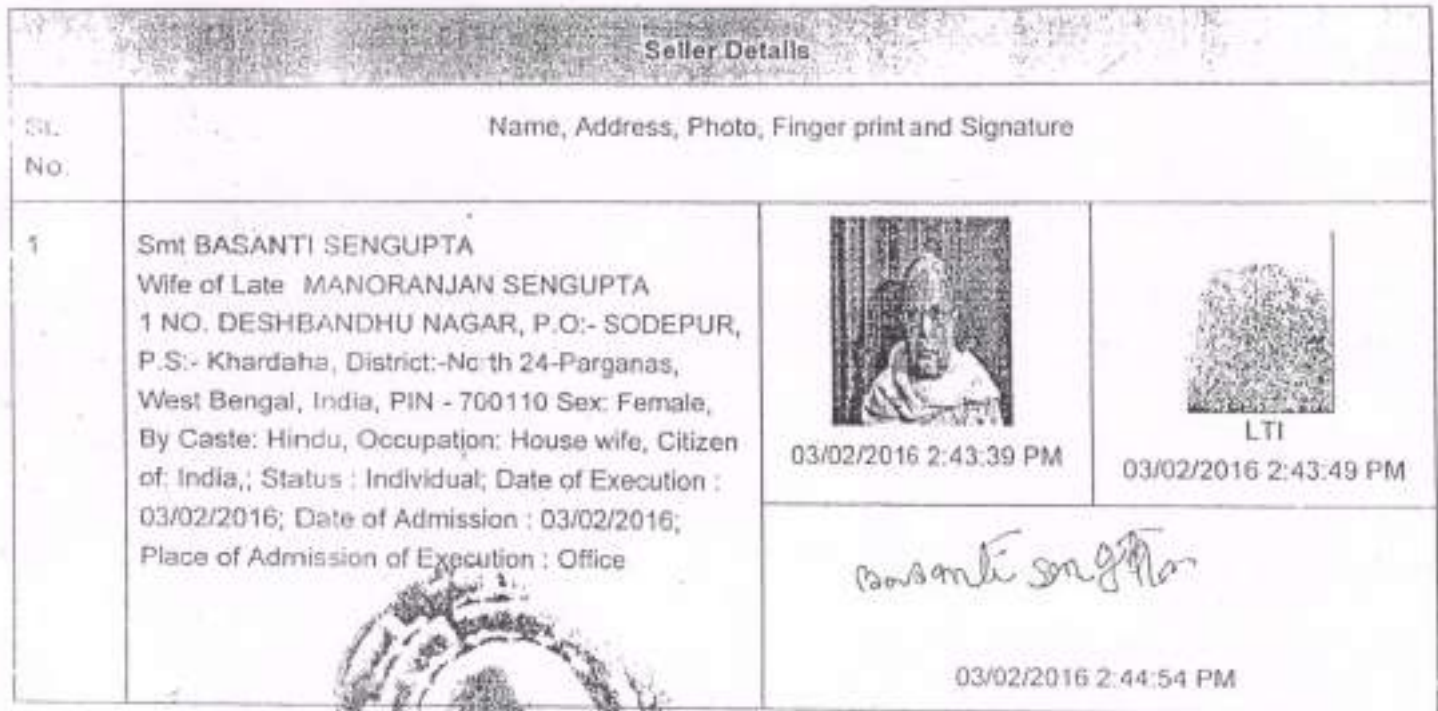 Seller Details
SL.
No.
Name, Address, Photo, Finger print and Signature
1
Smt BASANTI SENGUPTA
Wife of Late MANORANJAN SENGUPTA
1 NO. DESHBANDHU NAGAR, P.O:- SODEPUR,
P.S:- Khardaha, District:-North 24-Parganas,
West Bengal, India, PIN - 700110 Sex: Female,
By Caste: Hindu, Occupation: House wife, Citizen
of: India,; Status : Individual; Date of Execution :
03/02/2016; Date of Admission : 03/02/2016;
Place of Admission of Execution : Office
03/02/2016 2:43:39 PM
LTI
03/02/2016 2:43:49 PM
Basanti Sengupta
03/02/2016 2:44:54 PM